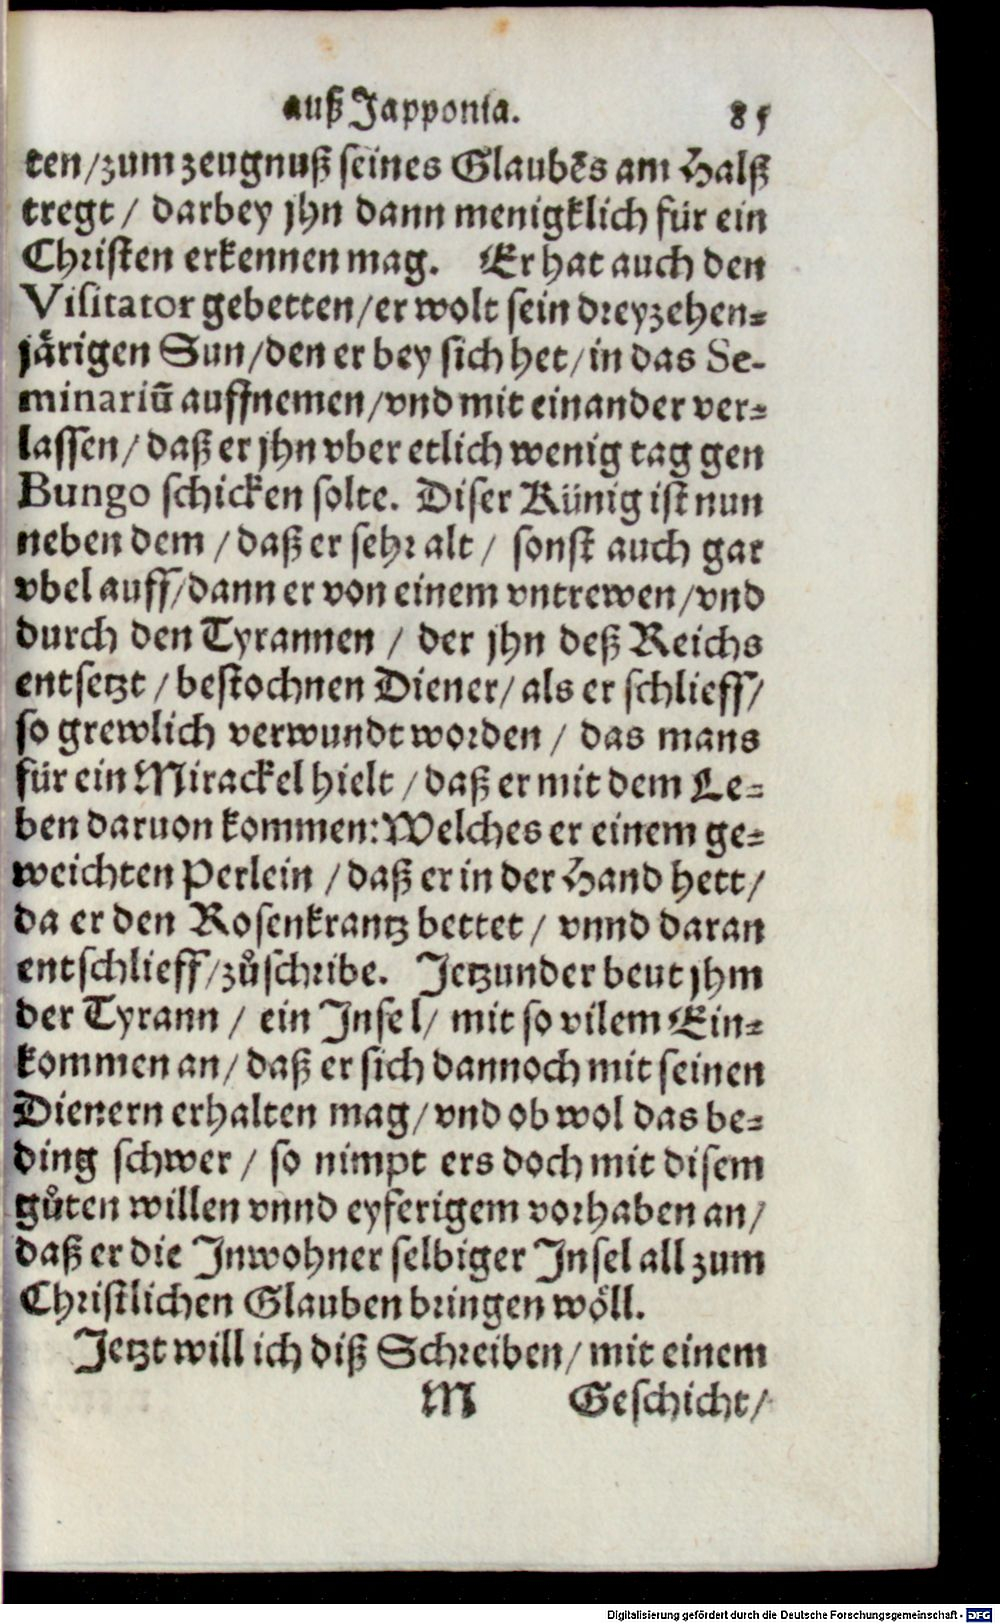 auß Japponia. 85
ten/zum zeugnuß seines Glaubēs am Halß
tregt / darbey jhn dann menigklich für ein
Christen erkennen mag. Er hat auch den
Visitator gebetten/er wolt sein dreyzehen⸗
jårigen Sun/den er bey sich het/in das Se-
minariū auffnemen/vnd mit einander ver⸗
lassen/ daß er jhn vber etlich wenig tag gen
Bungo schicken solte. Diser Künig ist nun
neben dem / daß er sehr alt / sonst auch gar
vbel auff/dann er von einem vntrewen/vnd
durch den Tyrannen / der jhn deß Reichs
entsetzt / bestochnen Diener/ als er schlieff/
so grewlich verwundt worden / das mans
für ein Mirackel hielt / daß er mit dem Le⸗
ben daruon kommen: Welches er einem ge⸗
weichten Perlein / daß er in der Hand hett/
da er den Rosenkrantz bettet / vnnd daran
entschlieff/zůschribe. Jetzunder beut jhm
der Tyrann / ein Jnsel/ mit so vilem Ein⸗
kommen an/ daß er sich dannoch mit seinen
Dienern erhalten mag/ vnd ob wol das be⸗
ding schwer / so nimpt ers doch mit disem
gůten willen vnnd eyferigem vorhaben an/
daß er die Jnwohner selbiger Jnsel all zum
Christlichen Glauben bringen wöll.
Jetzt will ich diß Schreiben/ mit einem
M Geschicht/
Digitalisierung gefördert durch die Deutsche Forschungsgemeinschaft - DFG